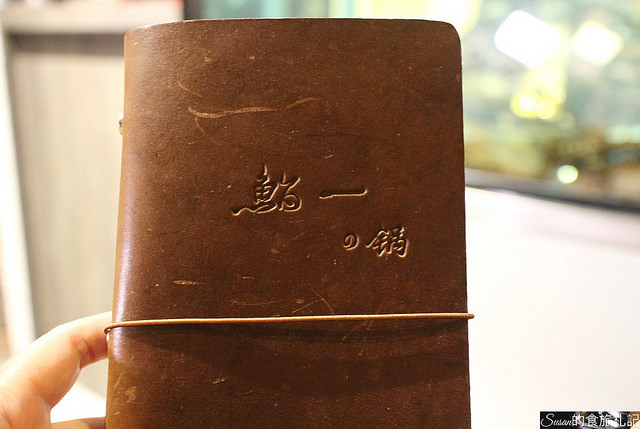 鮨一
の鍋
Susan的食旅札記